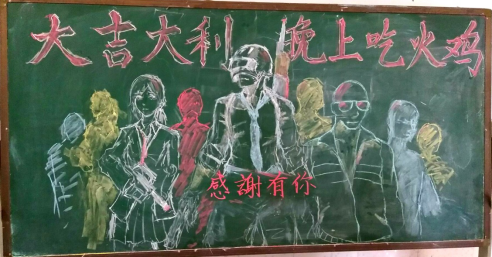 大吉大利 晚上吃火鸡
感謝有你